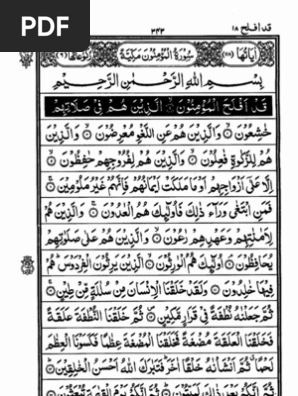 PDF
قد افلح ١٨
٣٤٣
سُورَةُ الْمُؤْمِنُونَ مَكِّيَّةٌ
بِسْمِ اللهِ الرَّحْمٰنِ الرَّحِيْمِ
قَدْ اَفْلَحَ الْمُؤْمِنُوْنَ ۝ الَّذِيْنَ هُمْ فِيْ صَلَاتِهِمْ
خٰشِعُوْنَ ۝ وَالَّذِيْنَ هُمْ عَنِ اللَّغْوِ مُعْرِضُوْنَ ۝ وَالَّذِيْنَ
هُمْ لِلزَّكٰوةِ فٰعِلُوْنَ ۝ وَالَّذِيْنَ هُمْ لِفُرُوْجِهِمْ حٰفِظُوْنَ ۝
اِلَّا عَلٰٓى اَزْوَاجِهِمْ اَوْ مَا مَلَكَتْ اَيْمَانُهُمْ فَاِنَّهُمْ غَيْرُ مَلُوْمِيْنَ ۝
فَمَنِ ابْتَغٰى وَرَآءَ ذٰلِكَ فَاُولٰٓئِكَ هُمُ الْعٰدُوْنَ ۝ وَالَّذِيْنَ هُمْ
لِاَمٰنٰتِهِمْ وَعَهْدِهِمْ رٰعُوْنَ ۝ وَالَّذِيْنَ هُمْ عَلٰى صَلَوٰتِهِمْ
يُحَافِظُوْنَ ۝ اُولٰٓئِكَ هُمُ الْوٰرِثُوْنَ ۝ الَّذِيْنَ يَرِثُوْنَ الْفِرْدَوْسَ هُمْ
فِيْهَا خٰلِدُوْنَ ۝ وَلَقَدْ خَلَقْنَا الْاِنْسَانَ مِنْ سُلٰلَةٍ مِّنْ طِيْنٍ ۝
ثُمَّ جَعَلْنٰهُ نُطْفَةً فِيْ قَرَارٍ مَّكِيْنٍ ۝ ثُمَّ خَلَقْنَا النُّطْفَةَ عَلَقَةً
فَخَلَقْنَا الْعَلَقَةَ مُضْغَةً فَخَلَقْنَا الْمُضْغَةَ عِظٰمًا فَكَسَوْنَا الْعِظٰمَ
لَحْمًا ثُمَّ اَنْشَاْنٰهُ خَلْقًا اٰخَرَ فَتَبٰرَكَ اللهُ اَحْسَنُ الْخٰلِقِيْنَ ۝
ثُمَّ اِنَّكُمْ بَعْدَ ذٰلِكَ لَمَيِّتُوْنَ ۝ ثُمَّ اِنَّكُمْ يَوْمَ الْقِيٰمَةِ تُبْعَثُوْنَ ۝